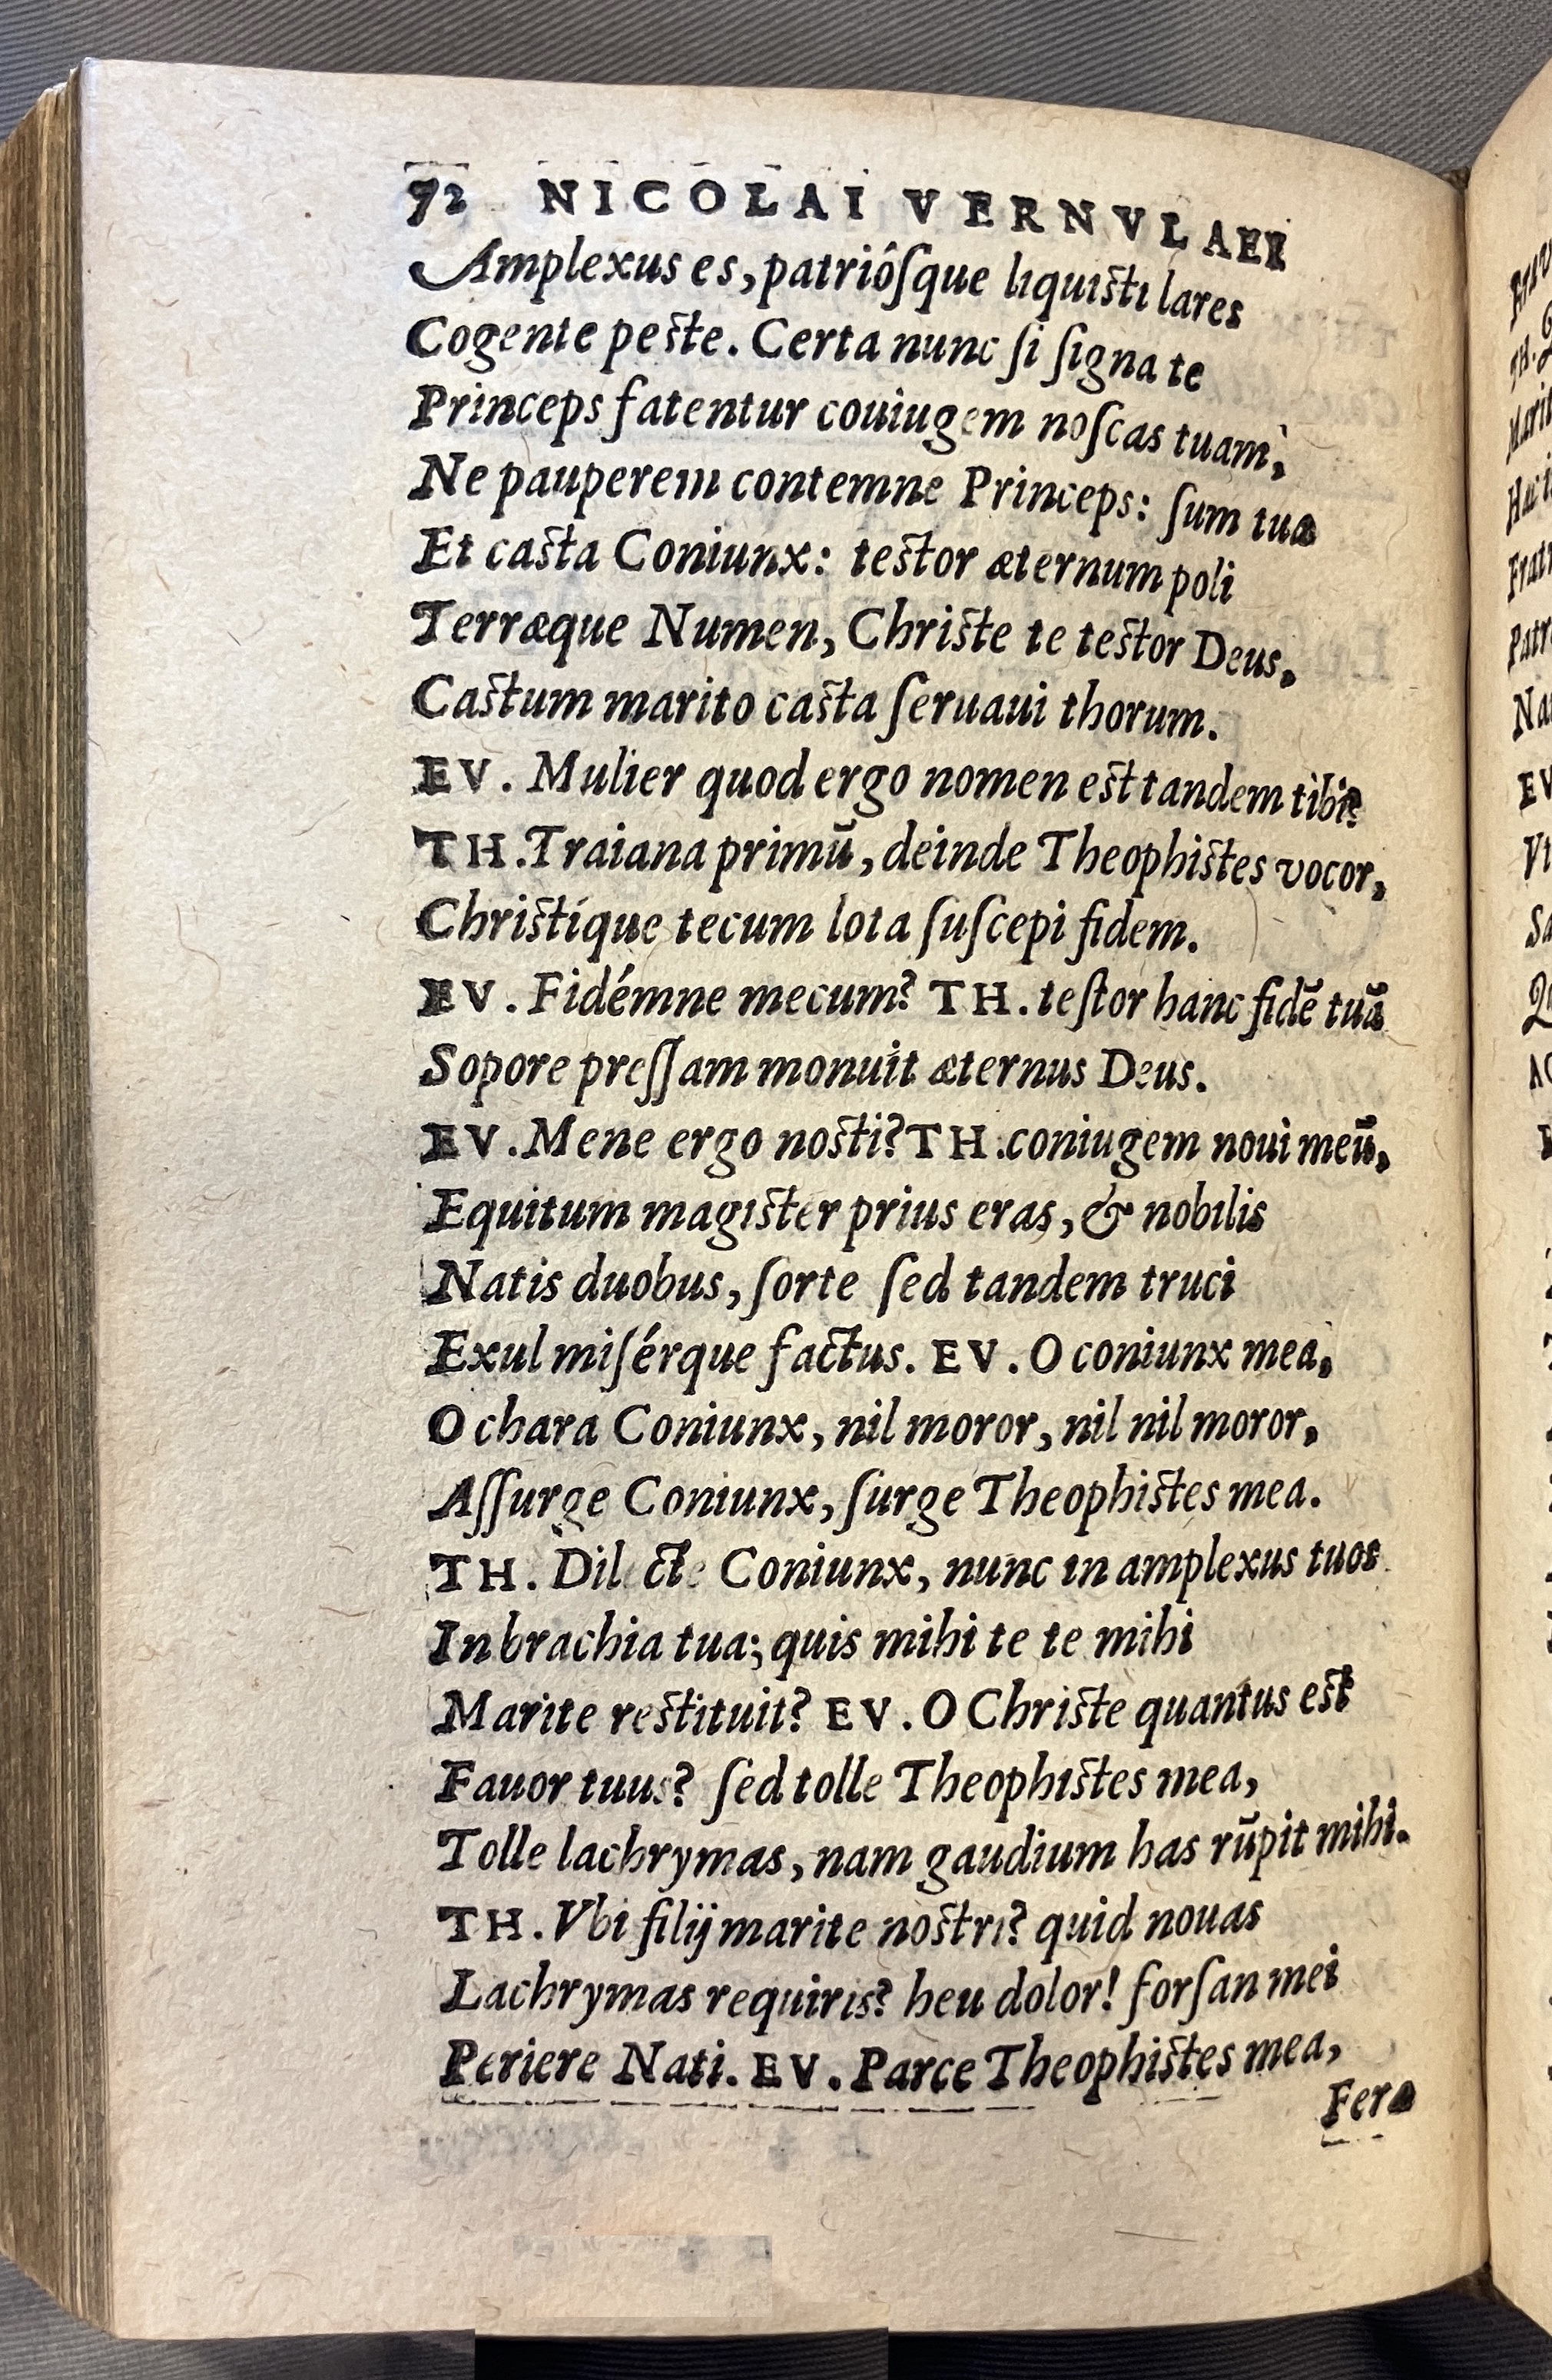 72 NICOLAI VERNVLAEI
Amplexus es, patriósque liquisti lares
Cogente peste. Certa nunc si signa te
Princeps fatentur couiugem noscas tuam,
Ne pauperem contemne Princeps: sum tua
Et casta Coniunx: testor æternum poli
Terræque Numen, Christe te testor Deus,
Castum marito casta seruaui thorum.
EV. Mulier quod ergo nomen est tandem tibi?
TH. Traiana primū, deinde Theophistes vocor,
Christíque tecum lota suscepi fidem.
EV. Fidémne mecum? TH. testor hanc fidē tuā
Sopore pressam monuit æternus Deus.
EV. Mene ergo nosti? TH. coniugem noui meū,
Equitum magister prius eras, & nobilis
Natis duobus, sorte sed tandem truci
Exul misérque factus. EV. O coniunx mea,
O chara Coniunx, nil moror, nil nil moror,
Assurge Coniunx, surge Theophistes mea.
TH. Dilecte Coniunx, nunc in amplexus tuos
In brachia tua; quis mihi te te mihi
Marite restituit? EV. O Christe quantus est
Fauor tuus? sed tolle Theophistes mea,
Tolle lachrymas, nam gaudium has rūpit mihi.
TH. Vbi filij marite nostri? quid nouas
Lachrymas requiris? heu dolor! forsan mei
Periere Nati. EV. Parce Theophistes mea,
Fera